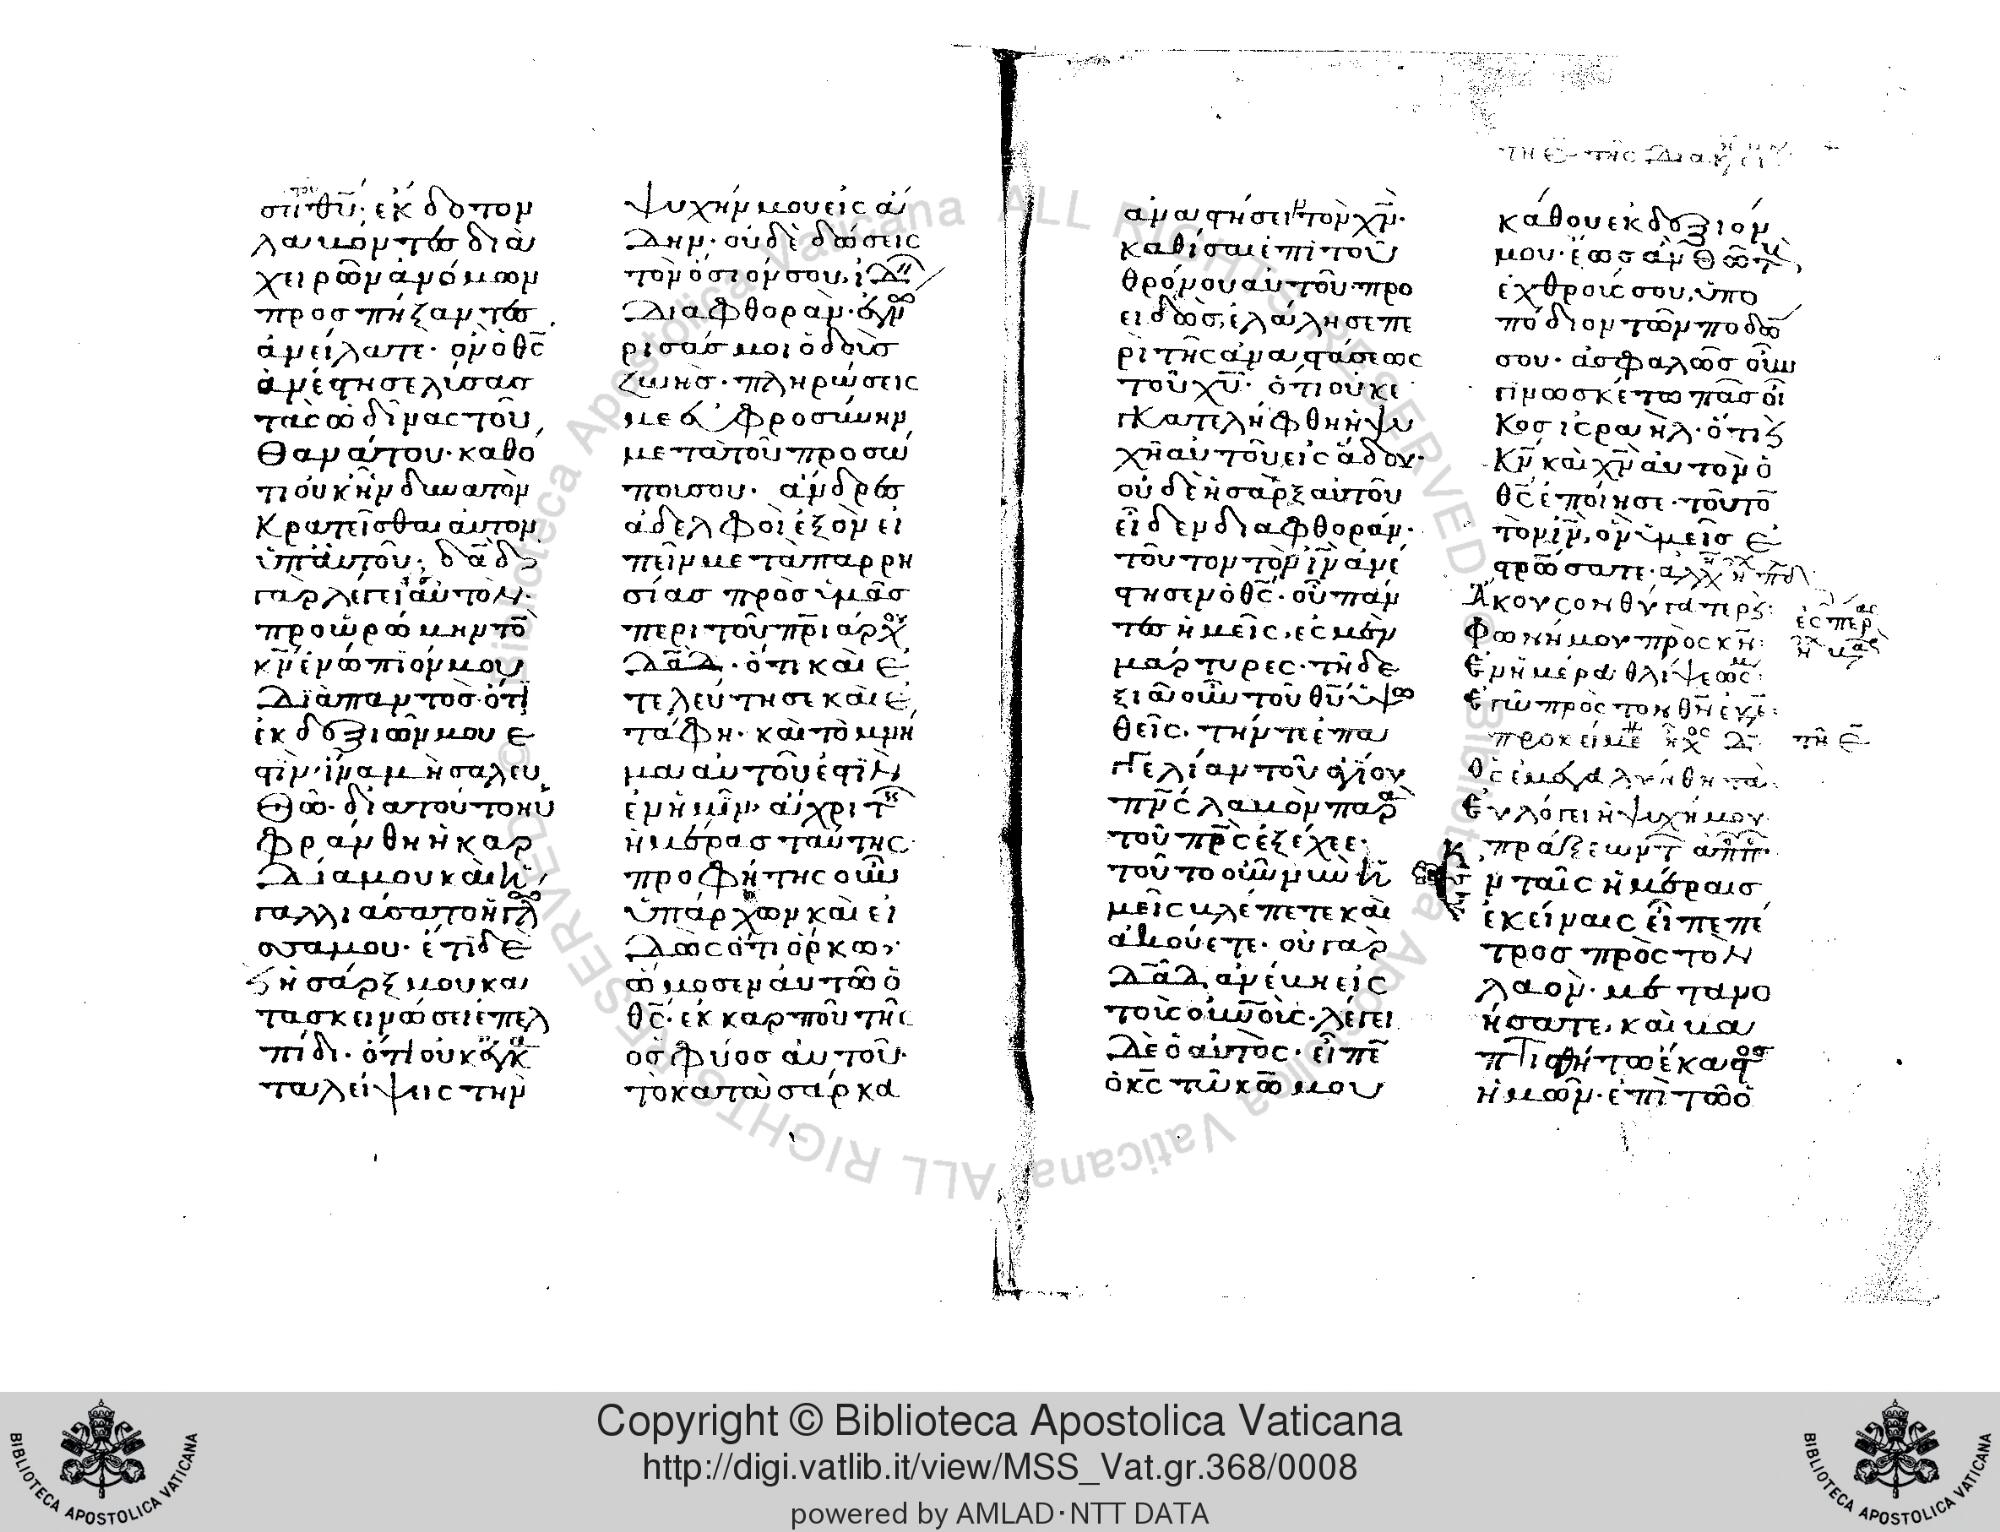 στι θῡ· ἐκδοτον
λαβόντες διὰ
χειρῶν ἀνόμων
προσπήξαντες
ἀνείλατε· ὃν ὁ θς̄
ἀνέστησε λύσας
τὰς ὠδῖνας τοῦ
θανάτου· καθό
τι οὐκ ἦν δυνατὸν
κρατεῖσθαι αὐτον
ὑπ' αὐτοῦ· δᾱδ
γὰρ λέγει εἰς αὐτόν·
προωρώμην τὸ
κν̄ ἐνώπιόν μου
διὰ παντός· ὅτι
ἐκ δεξιῶν μου ἐ
στὶν· ἵνα μὴ σαλευ
θῶ· διὰ τοῦτο ηὐ
φράνθη ἡ καρ
δία μου καὶ ἠ
γαλλιάσατο ἡ γλῶ
σσα μου· ἔτι δὲ
ϗ ἡ σάρξ μου κα
τασκηνώσει ἐπ' ἐλ
πίδι· ὅτι οὐκ ἐγκα
ταλείψεις τὴν
ψυχήν μου εἰς ἅ
δην· οὐδὲ δώσεις
τὸν ὅσιόν σου ἰδεῖν
διαφθοράν· ἐγνώ
ρισάς μοι ὁδοὺς
ζωῆς· πληρώσεις
με εὐφροσύνην
μετὰ τοῦ προσώ
που σου· ἄνδρες
ἀδελφοὶ ἐξὸν εἰ
πεῖν μετὰ παρρη
σίας πρὸς ὑμᾶς
περὶ τοῦ πρ̄ιάρχου
δᾱδ· ὅτι καὶ ἐ
τελεύτησε καὶ ἐ
τάφη· καὶ τὸ μνῆ
μα αὐτοῦ ἐστὶν
ἐν ἡμῖν ἄχρι τῆς
ἡμέρας ταύτης·
προφήτης οὖν
ὑπάρχων καὶ εἰ
δὼς ὅτι ὅρκω
ὤμοσεν αὐτῶ ὁ
θς̄· ἐκ καρποῦ τῆς
ὀσφύος αὐτοῦ·
τὸ κατὰ σάρκα
ἀναστήσειν τὸν χν̄·
καθίσαι ἐπὶ τοῦ
θρόνου αὐτοῦ· προ
ειδὼς, ἐλάλησε πε
ρὶ τῆς ἀναστάσεως
τοῦ χῡ· ὅτι οὐκ ἐ
γκατελήφθη ἡ ψυ
χὴ αὐτοῦ εἰς ἅδου·
οὐδὲ ἡ σὰρξ αὐτοῦ
εἶδεν διαφθοράν·
τοῦτον τὸν ῑν̄ ἀνέ
στησεν ὁ θς̄· οὗ πάν
τες ἡμεῖς, ἐσμὲν
μάρτυρες· τῆ δε
ξιᾶ οὖν τοῦ θῡ ὑψω
θεὶς, τήν τε ἐπα
γγελίαν τοῦ ἁγίου
πν̄ς̄ λαβὼν παρὰ
τοῦ πρ̄ς̄ ἐξέχεε·
τοῦτο ὃ νῦν ὑ
μεῖς βλέπετε καὶ
ἀκούετε· οὐ γὰρ
δᾱδ ἀνέβη εἰς
τοὺς οὐν̄οὺς· λέγει
δὲ ὁ αὐτὸς· εἶπεν
ὁ κς̄ τῶ κῶ μου
τῆ ε τῆς διακ
κάθου ἐκ δεξιῶν
μου· ἕως ἂν θῶ τοὺς
ἐχθρούς σου, ὑπο
πόδιον τῶν ποδῶν
σου· ἀσφαλῶς οὖν
γινωσκέτω πᾶς οἶ
κος ισραὴλ· ὅτι ϗ
κν̄ καὶ χν̄ αὐτὸν ὁ
θς̄ ἐποίησε· τοῦτον
τὸν ῑν̄, ὃν ὑμεῖς ἐ
σταυρώσατε·
Ἄκουσον θύγατερ ϗ·
Φωνή μου πρὸς κν̄·
Ἐν ἡμέρα θλίψεως·
Ἐγὼ πρὸς τον θν̄ ἐκέ·
προκείμε ἦχος δ τῆ ε
Ἐμεγαλύνθη τὰ·
Εὐλόγει ἡ ψυχή μου
πράξεων τ ἀπ
ν ταῖς ἡμέραις
ἐκείναις εἶπε πέ
τρος πρὸς τὸν
λαόν· μετανο
ήσατε, καὶ βα
πτισθήτω ἕκαστος
ὑμῶν· ἐπὶ τῶ ὀ
Copyright © Biblioteca Apostolica Vaticana
http://digi.vatlib.it/view/MSS_Vat.gr.368/0008
powered by AMLAD·NTT DATA
BIBLIOTECA APOSTOLICA VATICANA
BIBLIOTECA APOSTOLICA VATICANA
© Biblioteca Apostolica Vaticana ALL RIGHTS RESERVED